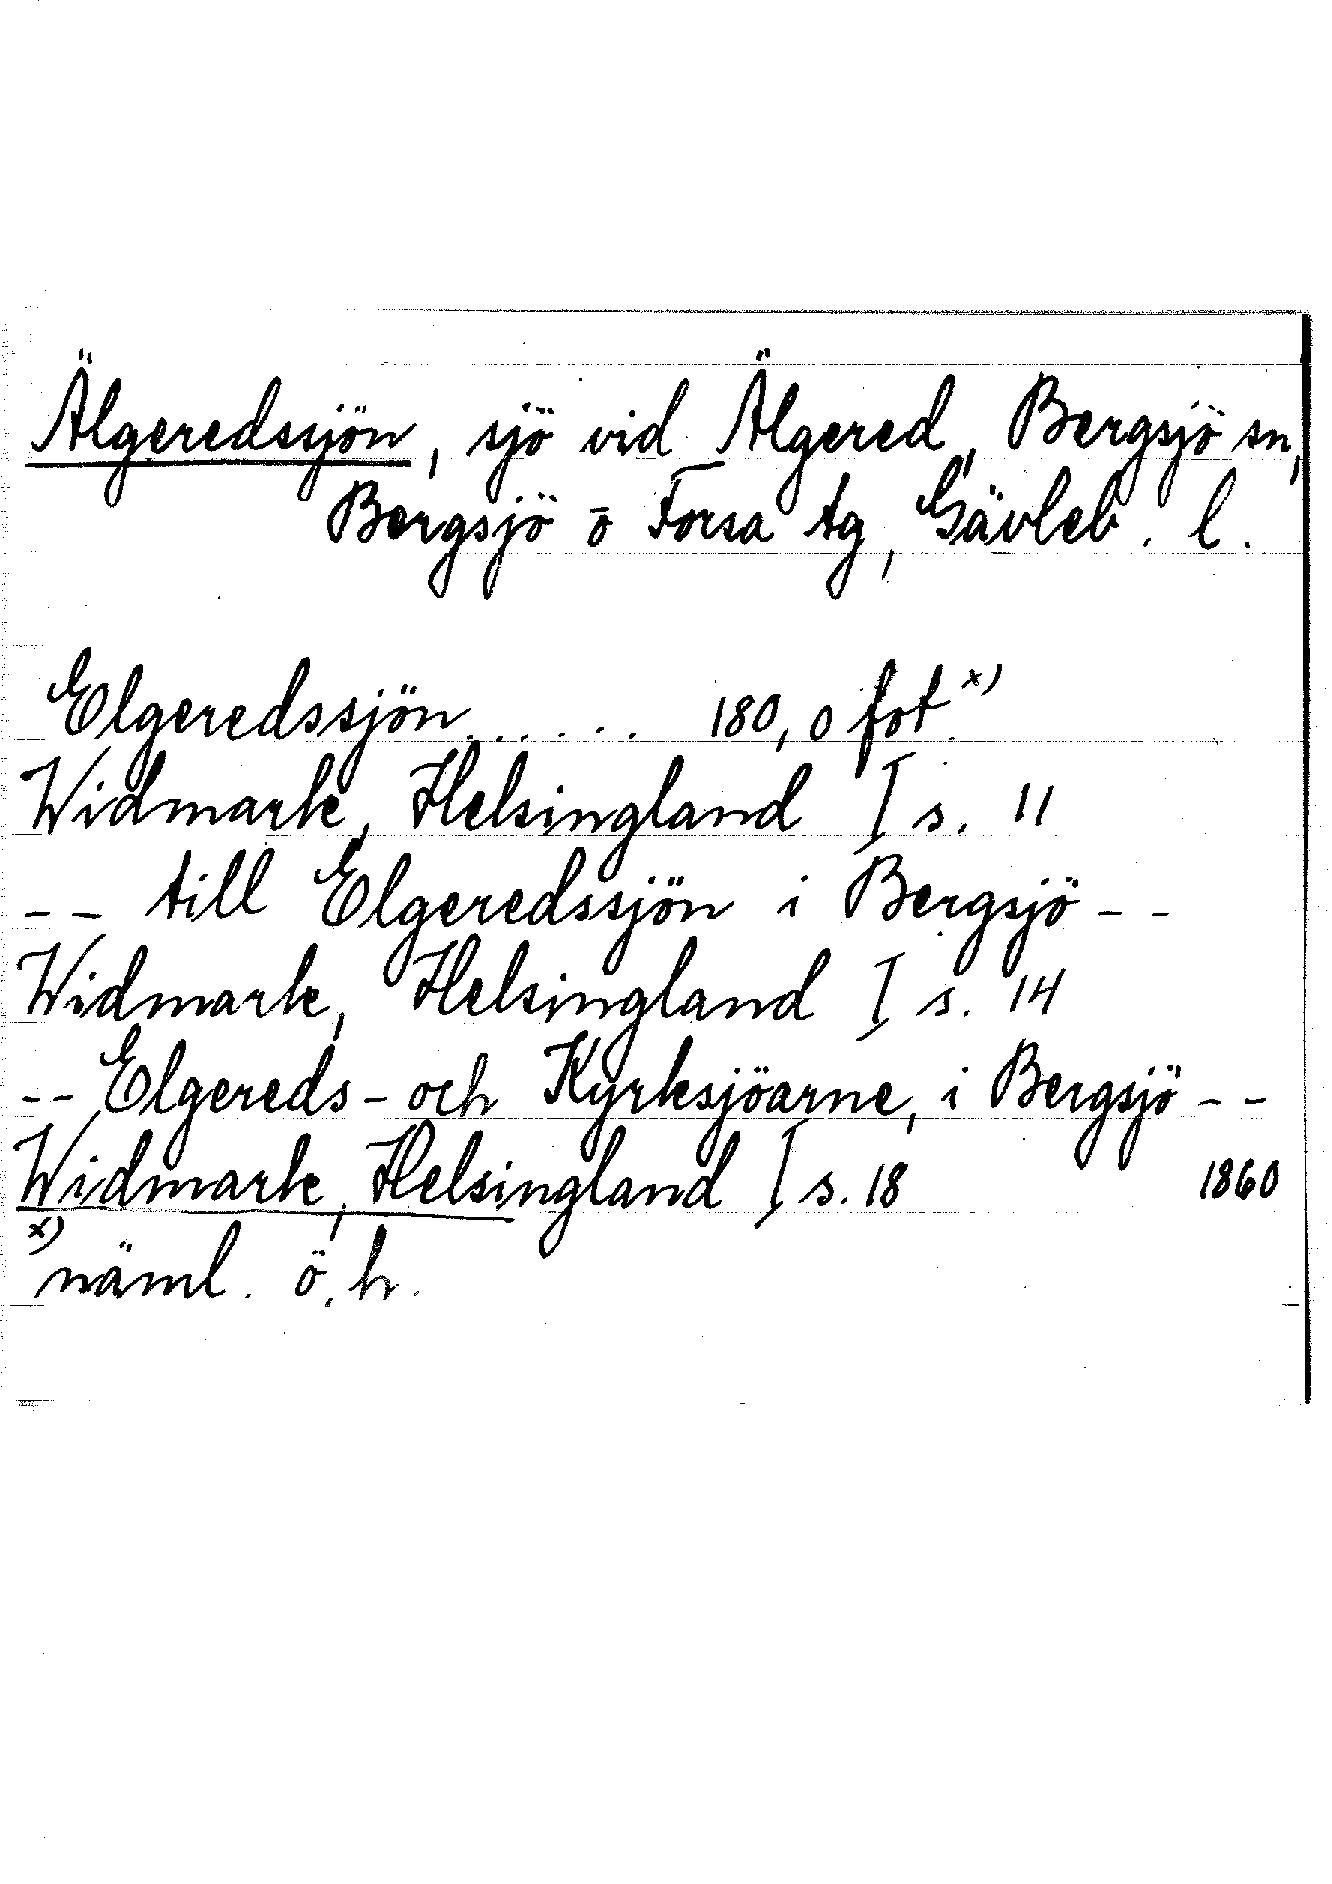 Älgeredssjön, sjö vid Älgered, Bergsjö sn,
Bergsjö o Forsa tg, Gävleb. l.
Elgeredssjön...... 180,0 fot x)
Widmark, Helsingland I s. 11
-- till Elgeredssjön i Bergsjö --
Widmark, Helsingland I s. 14
-- Elgereds- och Kyrksjöarne, i Bergsjö --
Widmark, Helsingland I s. 18 1860
x) näml. ö.h.